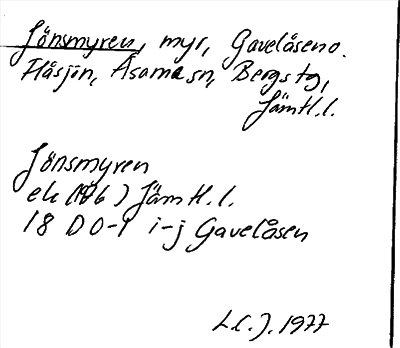 Jönsmyren, myr, Gavelåsen o.
Flåsjön, Åsarna sn, Bergs tg,
Jämtl.l.
Jönsmyren
ek (196 ) Jämtl.l.
18 D 0-1 i-j Gavelåsen
L.C.J. 1977